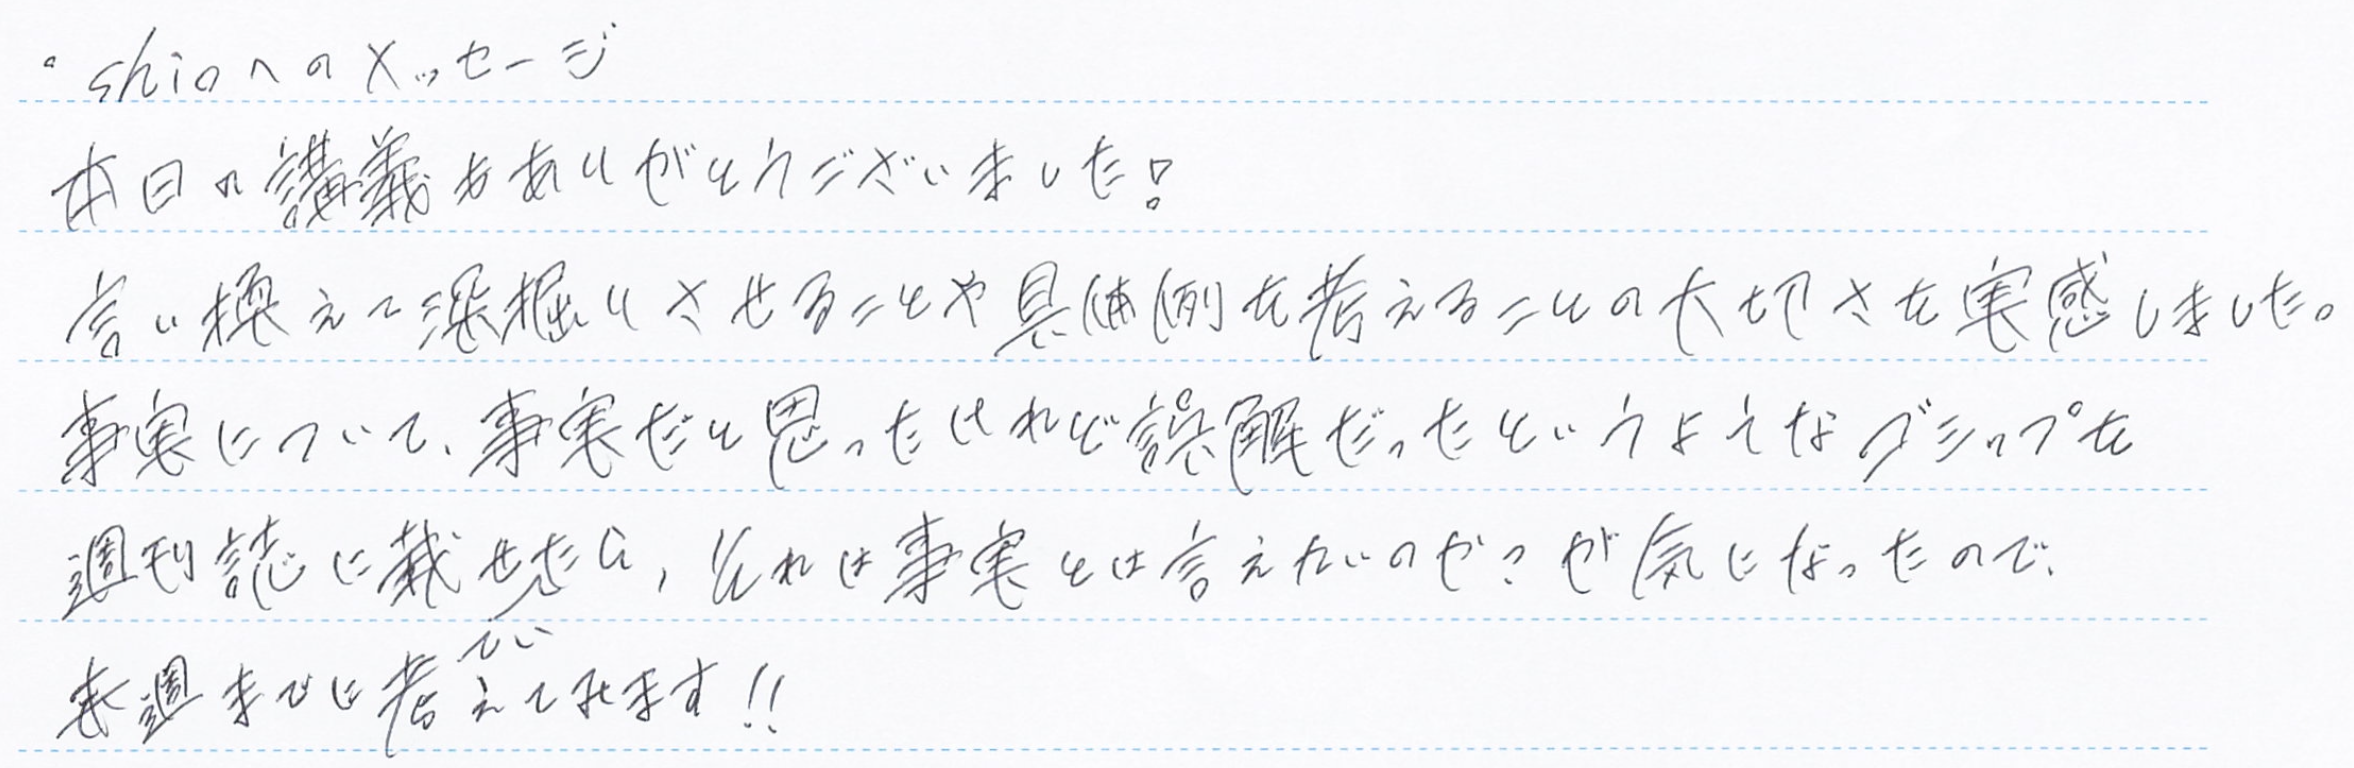 ・shioへのメッセージ
本日の講義もありがとうございました！
言い換えて深掘りさせることや具体例を考えることの大切さを実感しました。
事実について、事実だと思ったけれど誤解だったというようなゴシップを
週刊誌に載せていたら、それは事実とは言えないのか？が気になったので、
来週までに考えてみます!!